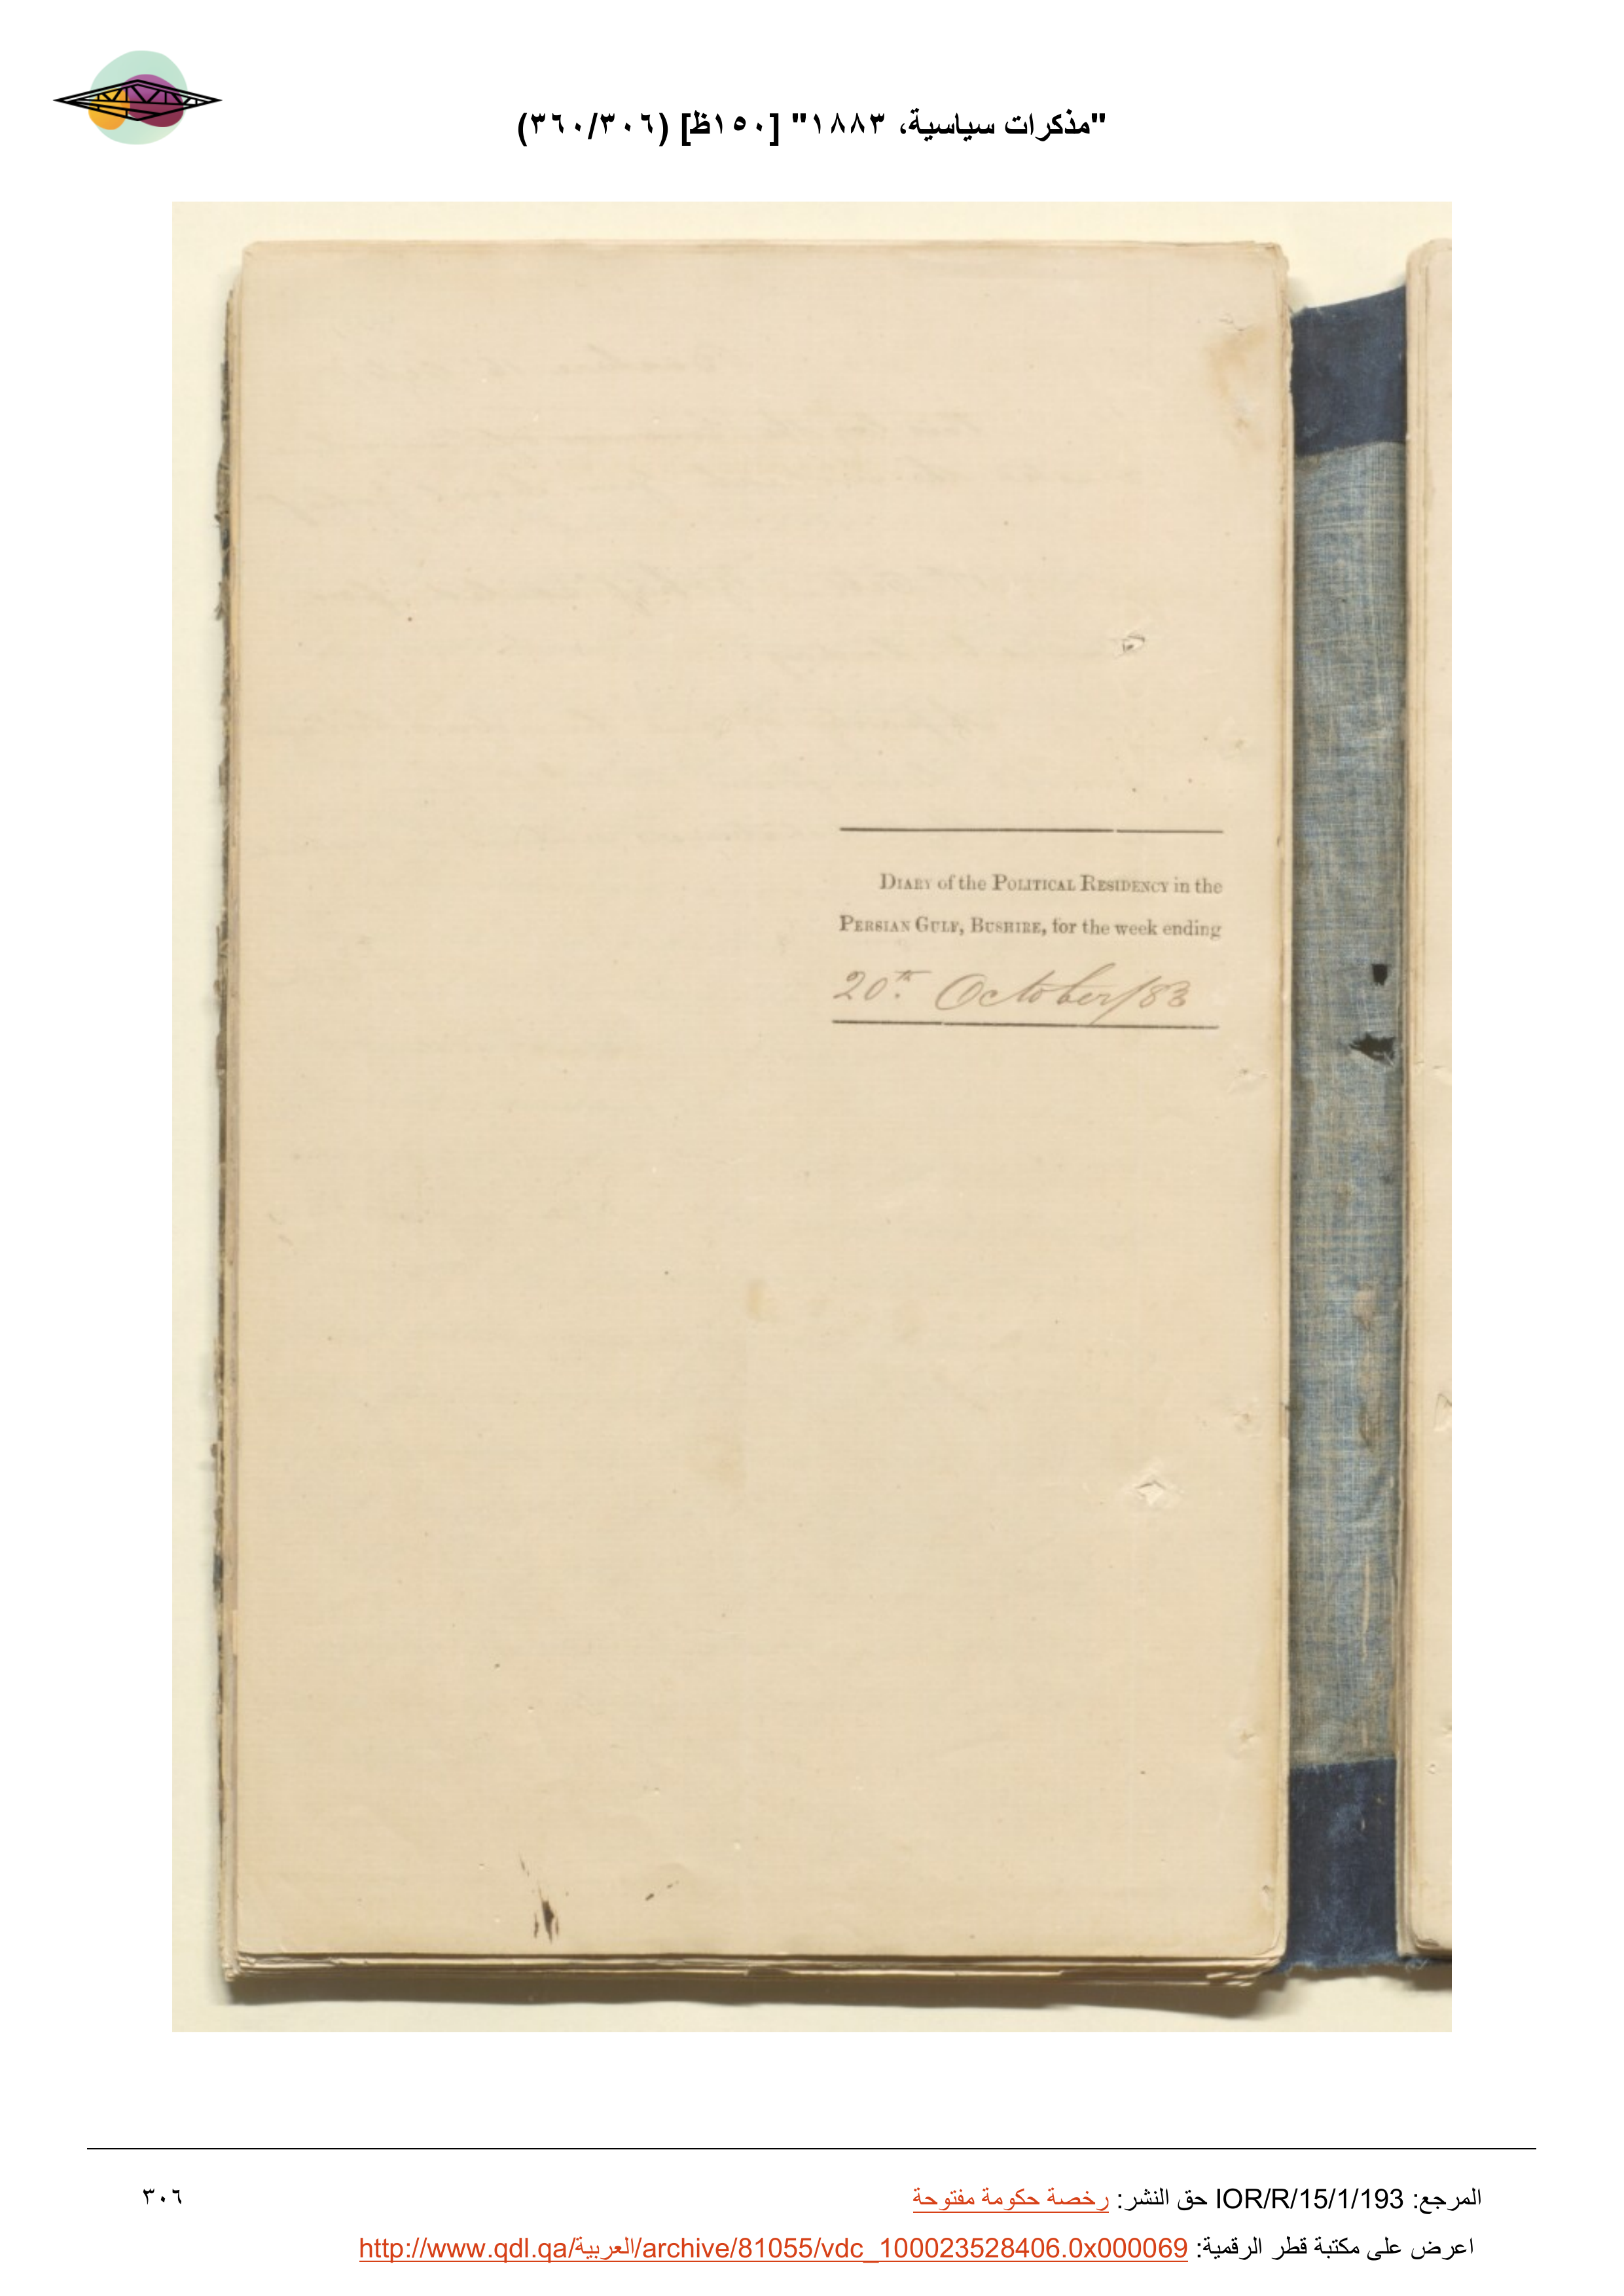 "مذكرات سياسية، ١٨٨٣" [١٥٠ظ] (٣٦٠/٣٠٦)
DIARY of the POLITICAL RESIDENCY in the
PERSIAN GULF, BUSHIRE, for the week ending
20th October/83
المرجع: IOR/R/15/1/193 حق النشر: رخصة حكومة مفتوحة
٣٠٦
اعرض على مكتبة قطر الرقمية: http://www.qdl.qa/العربية/archive/81055/vdc_100023528406.0x000069